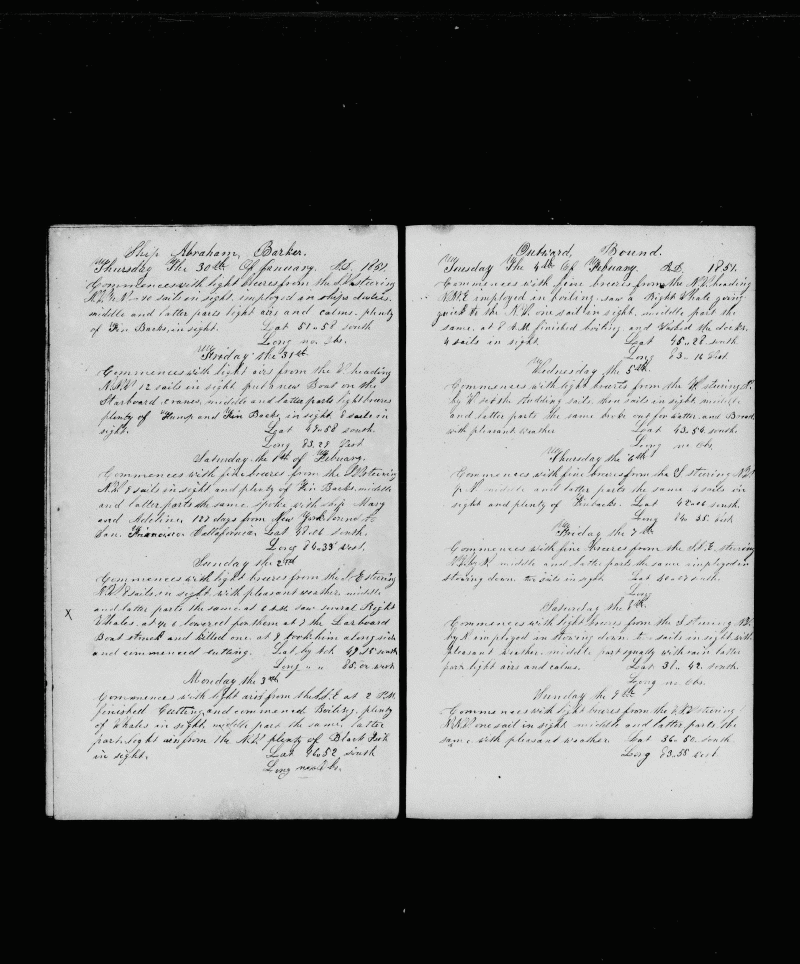 Ship Abraham, Barker.
Thursday The 30th Of January. A.D. 1851.
Commences with light breeres from the steering
10 sails in sight. employed on ships duties.
middle and latter parts light airs and calms. plenty
of Fin Backs, in sight. Lat 51..58 south
Long no. Obs.
Friday the 31st
Commences with light airs from the heading
12 sails in sight put a new Boat on the
Starboard cranes, middle and latter parts light breeres
plenty of Hump and Fin Backs in sight. 8 sails in
sight. Lat 49..58 south.
Long 83.29 West
Saturday the 1st of February.
Commences with fine breeres from the steering
sails in sight and plenty of Fin Backs. middle
and latter parts the same. spoke with ship Mary
and Adeline, 127 days from New York bound to
San. Francisco Lat south.
Long 84..33 west.
Sunday the 2nd
Commences with light breeres from the steering
sails in sight with pleasant weather. middle
and latter parts the same at saw several Right
Whales. at lowered for them at 7 the Larboard
X
Boat struck and killed one. at 9 took him along side
and commenced cutting. Lat by Obs 49.15 south
Long " " 85.00 west
Monday the 3rd
Commences with light airs from the at 2 P.M.
finished Cutting and commenced Boiling. plenty
of Whales in sight. middle part the same. latter
part light airs from the plenty of Black Fish
in sight. Lat 46..52 south
Long no Obs.
Outward, Bound.
Tuesday The 4th Of February. A.D. 1851.
Commences with fine breeres from the heading
employed in boiling. saw a Right Whale going
quick to the one sail in sight. middle part the
same. at 8 A.M. finished boiling and Washed the decks.
4 sails in sight. Lat 45..28 south
Long 83..16 West
Wednesday the 5th.
Commences with light breeres from the steering
by set the studding sails. three sails in sight. middle
and latter parts the same out for Water and Bread
with pleasant weather Lat 43.54 south.
Long no Obs.
Thursday the 6th
Commences with fine breeres from the S steering
middle and latter parts the same 4 sails in
sight and plenty of Finbacks. Lat 42..06 south.
Long 84. 35. West
Friday the 7th
Commences with fine breeres from the steering
middle and latter parts the same employed in
stowing down. sails in sight. Lat 40..07 south.
Long
Saturday the 8th.
Commences with light breeres from the S steering
by N employed in stowing down sails in sight with
pleasant weather. middle part squally with rain latter
part light airs and calms. Lat 38. 42. south
Long no Obs.
Sunday the 9th
Commences with light breeres from the steering
one sail in sight middle and latter parts the
same with pleasant weather. Lat 36..52 south
Long 83..58 west.